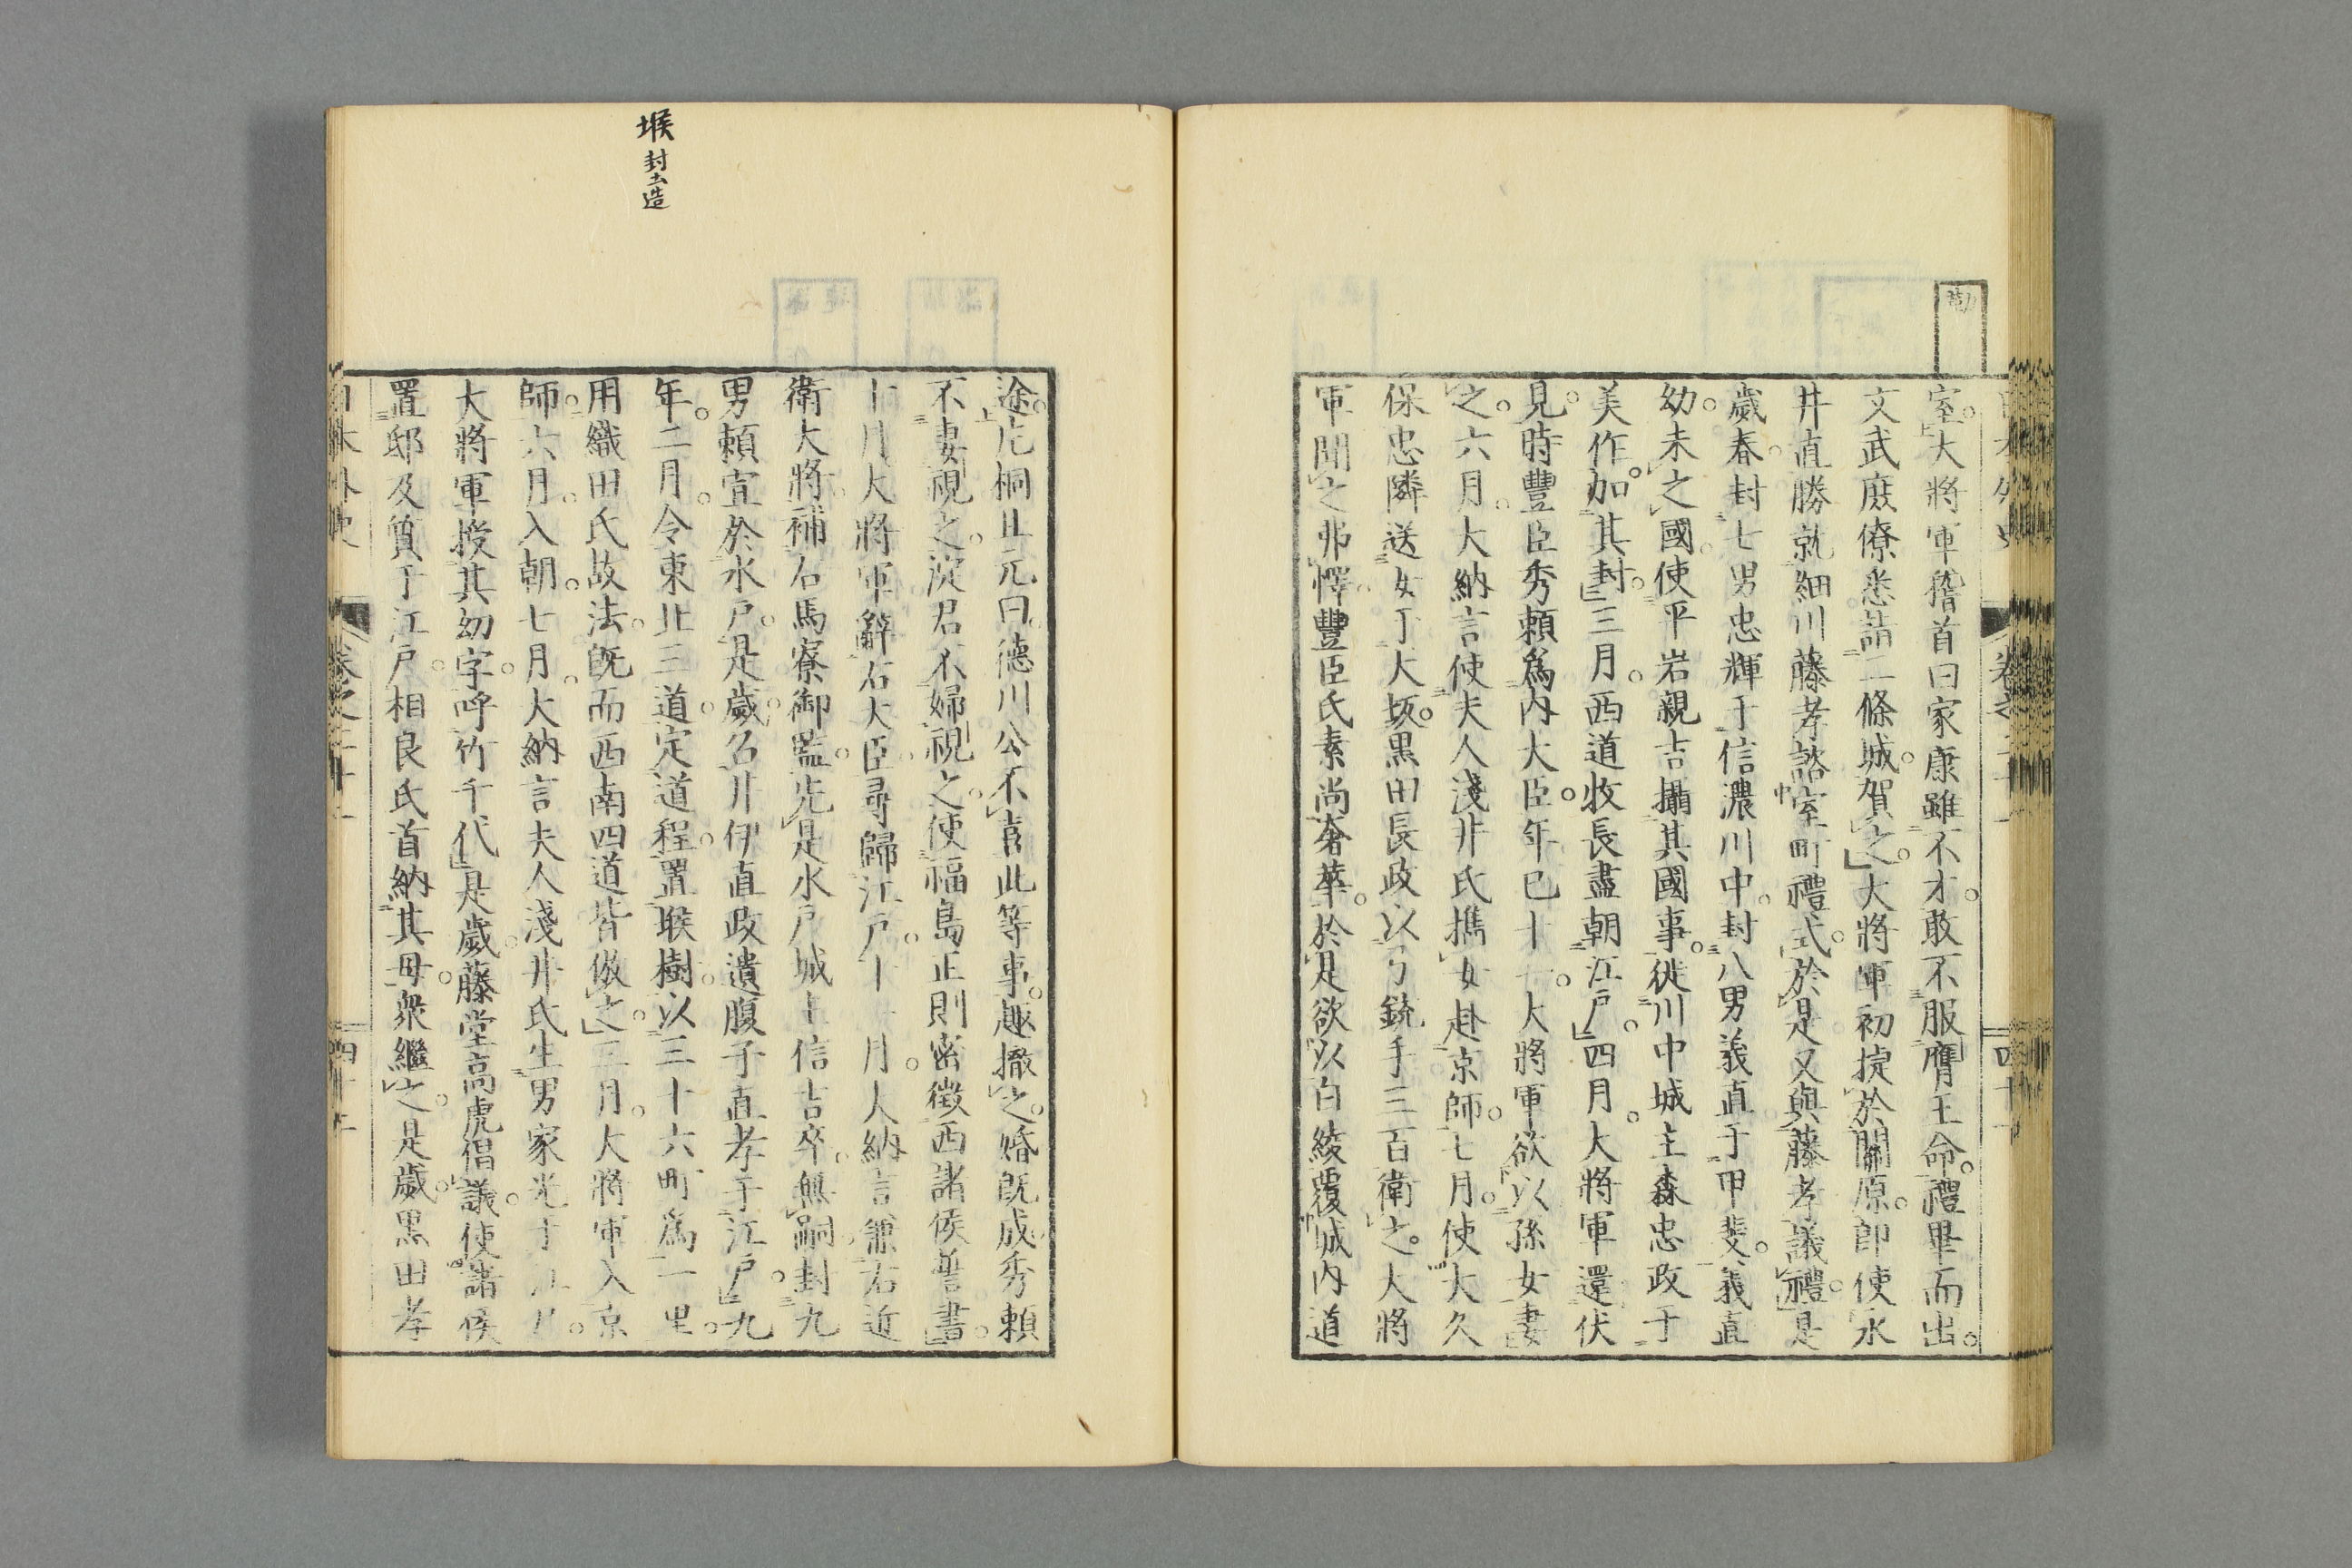 日本外史
卷之二十一
四十一
室。大將軍稽首曰家康雖不才。敢不服膺王命。禮畢而出。
文武庶僚悉詣二條城。賀之。大將軍初捷於關原。即使永
井直勝就細川藤孝諮室町禮式。於是又與藤孝議禮。是
歲春。封七男忠輝于信濃川中。封八男義直于甲斐。義直
幼。未之國。使平岩親吉攝其國事。徙川中城主森忠政于
美作。加其封。三月。西道牧長盡朝江戶。四月。大將軍還伏
見。時豐臣秀賴爲內大臣。年已十一。大將軍欲以孫女妻
之。六月。大納言使夫人淺井氏携女赴京師。七月。使大久
保忠隣送女于大坂。黑田長政以弓銃手三百衛之。大將
軍聞之弗懌。豐臣氏素尚奢華。於是欲以白綾覆城內道
途。片桐且元曰。德川公不喜此等事。趣撤之。婚既成。秀賴
不妻視之。淀君不婦視之。使福島正則密徵西諸侯誓書。
十月。大將軍辭右大臣。尋歸江戶。十一月。大納言兼右近
衛大將。補右馬寮御監。先是。水戶城主信吉卒。無嗣。封九
男賴宣於水戶。是歲。召井伊直政遺腹子直孝于江戶。九
年。二月。令東北三道。定道程。置堠樹。以三十六町爲一里。
用織田氏故法。既而西南四道皆倣之。三月。大將軍入京
師。六月。入朝。七月。大納言夫人淺井氏生男家光于江戶。
大將軍授其幼字。呼竹千代。是歲。藤堂高虎倡議。使諸侯
置邸及質于江戶。相良氏首納其母。衆繼之。是歲。黑田孝
日本外史
卷之二十一
堠 封土造